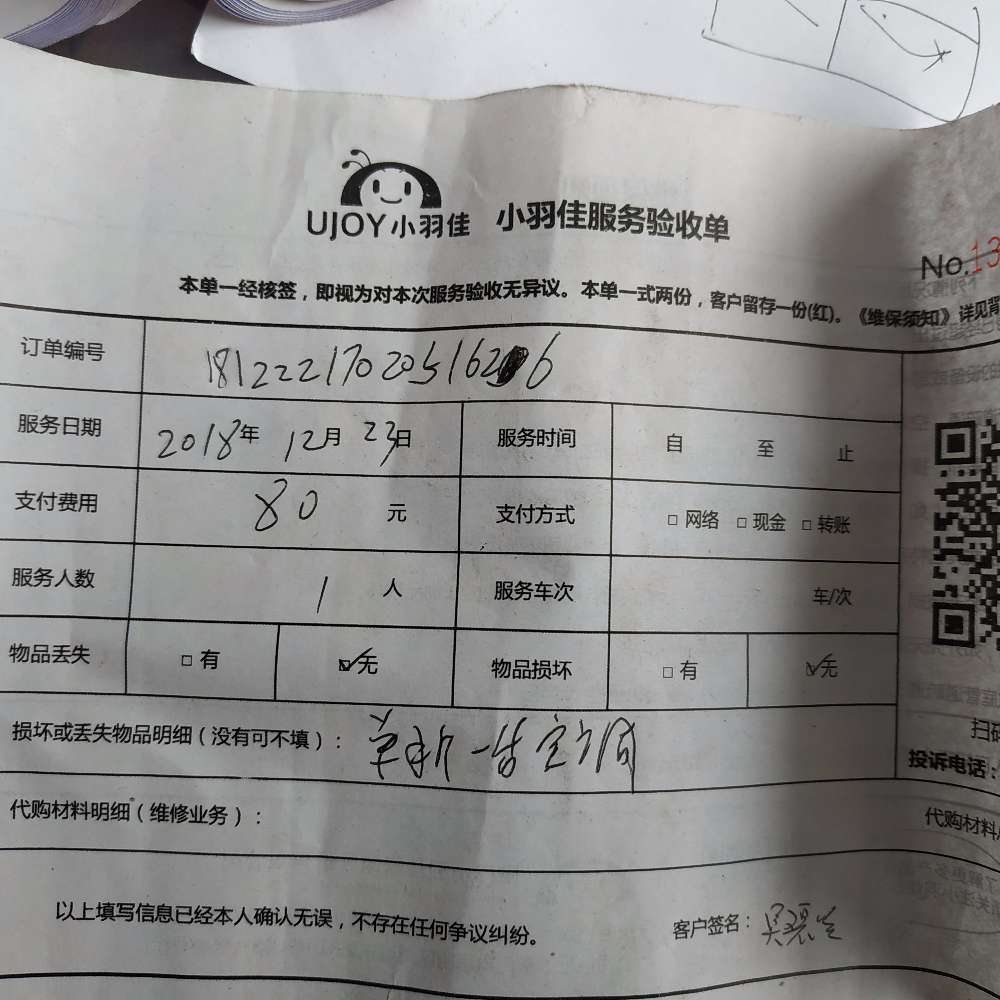 UJOY小羽佳 小羽佳服务验收单
No.13
本单一经核签，即视为对本次服务验收无异议。本单一式两份，客户留存一份(红)。《维保须知》详见背
订单编号 181222170205162 6
服务日期 2018年 12月 23日 服务时间 自 至 止
支付费用 80 元 支付方式 □ 网络 □ 现金 □ 转账
服务人数 1 人 服务车次 车/次
物品丢失 □ 有 ☑无 物品损坏 □ 有 ☑无
扫码
损坏或丢失物品明细（没有可不填）： 空调
投诉电话：
代购材料明细（维修业务）：
代购材料
以上填写信息已经本人确认无误，不存在任何争议纠纷。 客户签名：吴